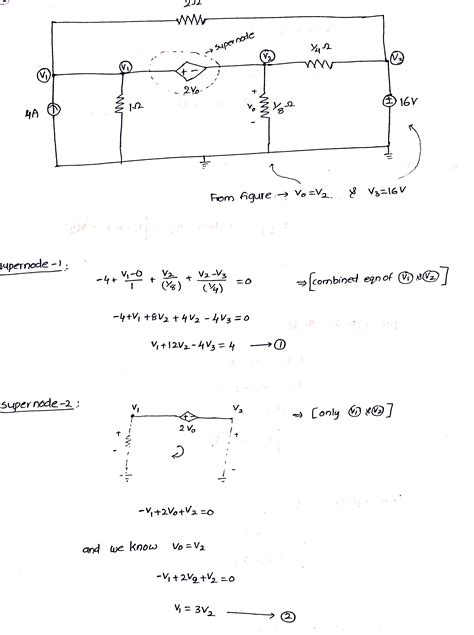 2Ω
supernode
V1
V1
+ -
2V0
V2
1/4 Ω
V3
4A
1Ω
+
V0
-
1/8 Ω
16V
From figure → V0=V2. & V3=16V
supernode-1:
-4+ (V1-0)/1 + V2/(1/8) + (V2-V3)/(1/4) =0 ⇒[combined eqn of V1 & V2]
-4+V1+8V2+4V2-4V3=0
V1+12V2-4V3=4 → 1
supernode-2:
V1 V2 ⇒ [only V1 & V2]
2V0
+ +
- -
-V1+2V0+V2=0
and we know V0=V2
-V1+2V2+V2=0
V1=3V2 → 2